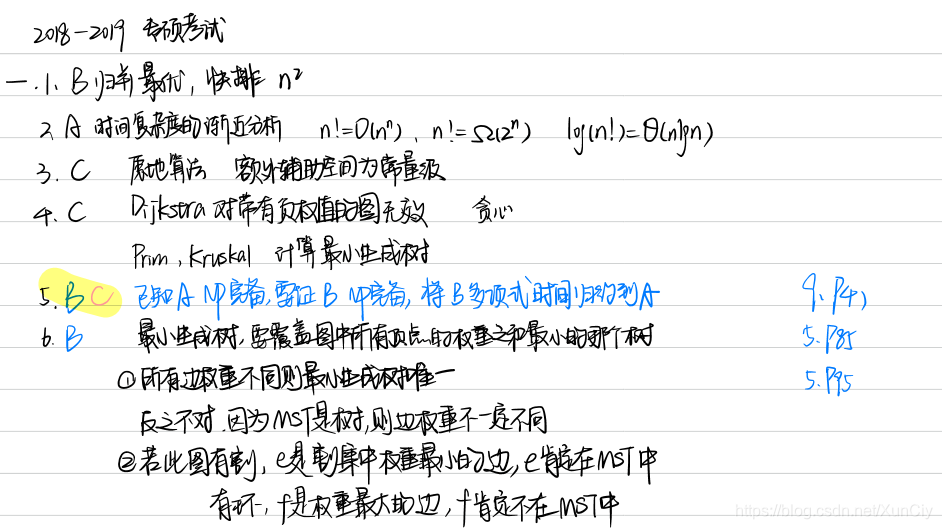 2018-2019 专硕考试
一.1、B 归并最优, 快排 n²
2、A 时间复杂度的渐近分析 n!=O(nⁿ), n!=Ω(2ⁿ) log(n!)=Θ(nlgn)
3. C 原地算法 额外辅助空间为常量级
4. C Dijkstra 对带有负权值的图无效 贪心
Prim, Kruskal 计算最小生成树
5. B C 已知A NP完备,要证B NP完备, 将B多项式时间归约到A 9. P41
6. B 最小生成树,要覆盖图中所有顶点的权重之和最小的那个树 5.P85
①所有边权重不同则最小生成树唯一 5.P95
反之不对.因为MST是树,则边权重不一定不同
②若此图有割, e是割集中权重最小的边, e肯定在MST中
有环, f是权重最大的边, f肯定不在MST中
https://blog.csdn.net/XunCiy